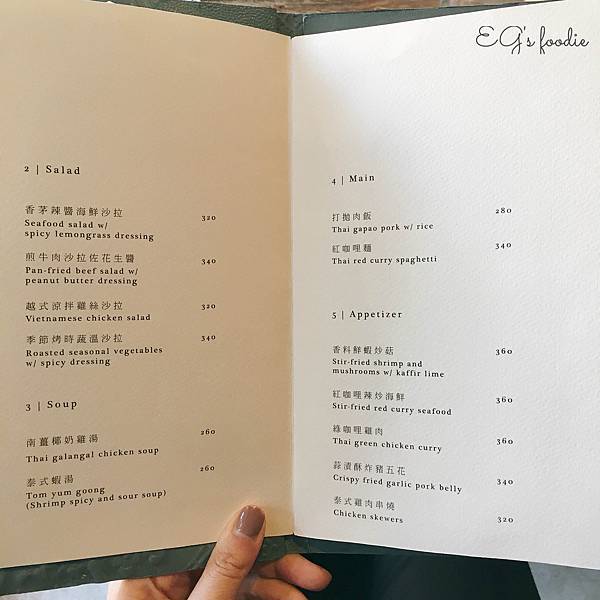 EG's foodie
2 | Salad
香茅辣醬海鮮沙拉 320
Seafood salad w/
spicy lemongrass dressing
煎牛肉沙拉佐花生醬 340
Pan-fried beef salad w/
peanut butter dressing
越式涼拌雞絲沙拉 320
Vietnamese chicken salad
季節烤時蔬溫沙拉 340
Roasted seasonal vegetables
w/ spicy dressing
3 | Soup
南薑椰奶雞湯 260
Thai galangal chicken soup
泰式蝦湯 260
Tom yum goong
(Shrimp spicy and sour soup)
4 | Main
打拋肉飯 280
Thai gapao pork w/ rice
紅咖哩麵 340
Thai red curry spaghetti
5 | Appetizer
香料鮮蝦炒菇 360
Stir-fried shrimp and
mushrooms w/ kaffir lime
紅咖哩辣炒海鮮 360
Stir-fried red curry seafood
綠咖哩雞肉 360
Thai green chicken curry
蒜漬酥炸豬五花 340
Crispy fried garlic pork belly
泰式雞肉串燒 320
Chicken skewers